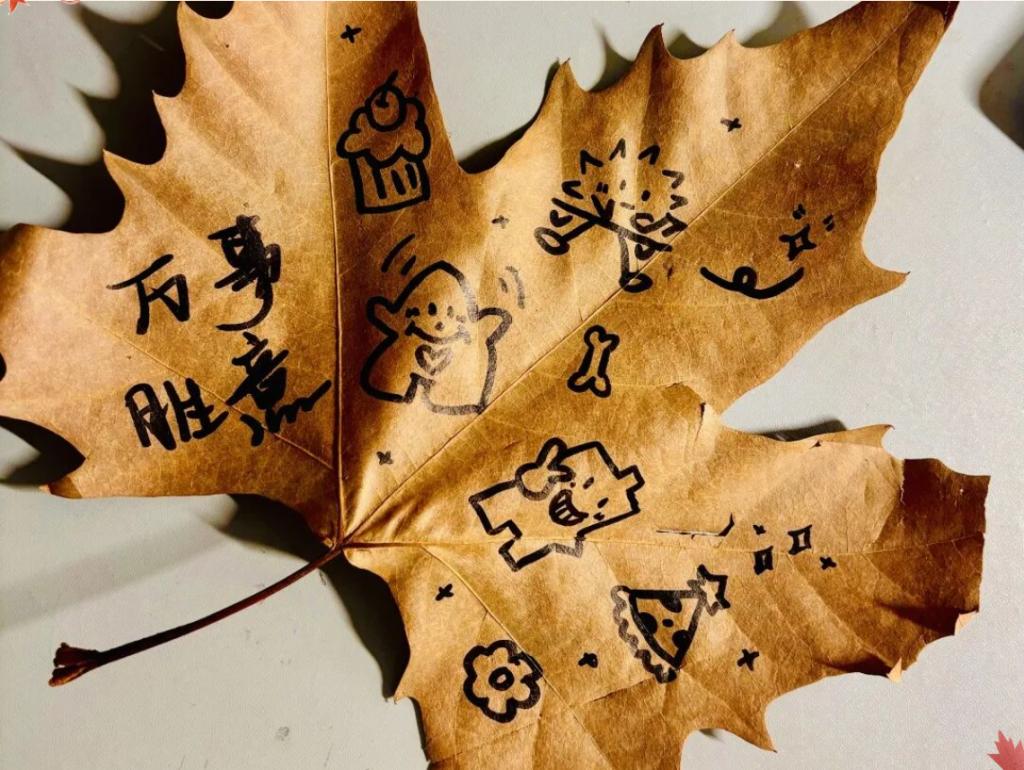 万事
胜意